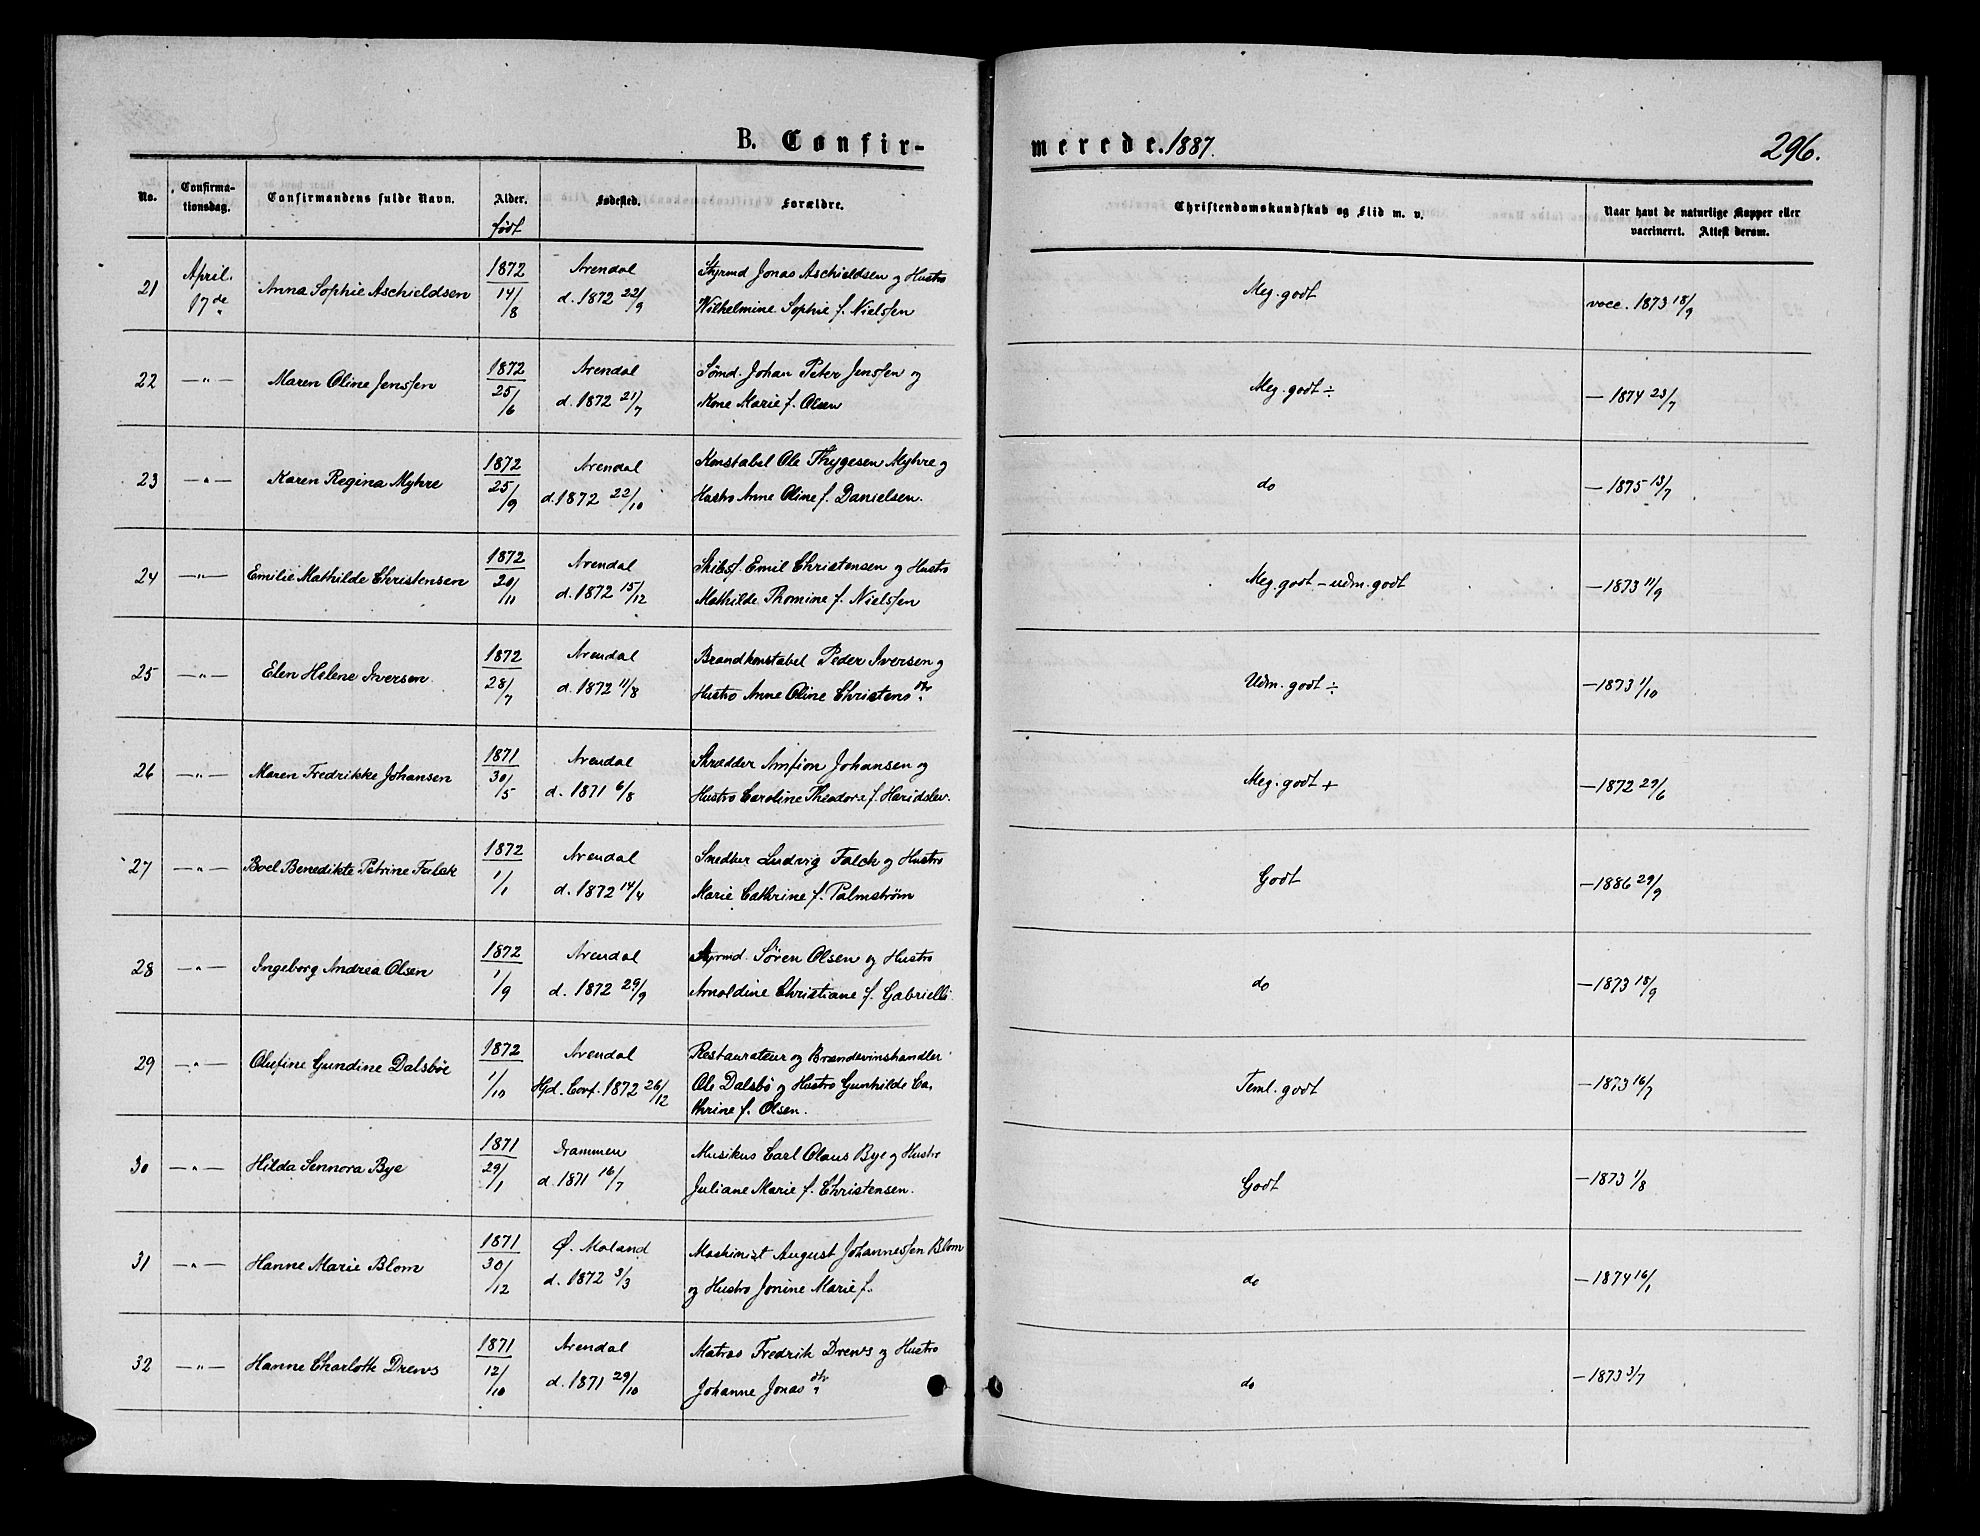 B. Confir-
merede. 1887.
296.
No.
Confirma-
tionsdag.
Confirmandens fulde Navn.
Alder.
født
Fødested.
Forældre.
Christendomskundskab og Flid m. v.
Naar havt de naturlige Kopper eller
vaccineret. Attest derom.
21 April. 17de Anna Sophie Aschieldsen 1872 14/8 Arendal d. 1872 22/9 Styrmd Jonas Aschieldsen og Hustro
Wilhelmine Sophie f. Nielsen Meg. godt vacc. 1873 18/9
22 —"— Maren Oline Jenssen 1872 25/6 Arendal d. 1872 21/7 Sømd. Johan Peter Jenssen og
Kone Marie f. Olsen Meg. godt ÷ — 1874 23/7
23 —"— Karen Regina Myhre 1872 25/9 Arendal d. 1872 22/10 Konstabel Ole Thygesen Myhre og
Hustro Anne Oline f. Danielsen. do — 1875 13/7
24 —"— Emilie Mathilde Christensen 1872 20/11 Arendal d. 1872 15/12 Skibsf. Emil Christensen og Hustro
Mathilde Thomine f. Nielsen Meg. godt – udm. godt — 1873 11/9
25 —"— Elen Helene Iversen 1872 28/7 Arendal d. 1872 11/8 Brandkonstabel Peder Iversen og
Hustro Anne Oline Christensdtr. Udm. godt ÷ — 1873 1/10
26 —"— Maren Fredrikke Johansen 1871 30/5 Arendal d. 1871 6/8 Skrædder Amfion Johansen og
Hustro Caroline Theodora f. Haridslev. Meg. godt + — 1872 29/6
27 —"— Boel Benedikte Petrine Falck 1872 1/1 Arendal d. 1872 14/4 Snedker Ludvig Falck og Hustro
Marie Cathrine f. Palmstrøm Godt — 1886 29/9
28 —"— Ingeborg Andrea Olsen 1872 1/9 Arendal d. 1872 29/9 Styrmd. Søren Olsen og Hustro
Arnoldine Christiane f. Gabrielli. do — 1873 18/9
29 —"— Olufine Gundine Dalsbøe 1872 1/10 Arendal Hjd. Conf. 1872 26/12 Restaurateur og Brændevinshandler
Ole Dalsbø og Hustro Gunhilde Ca-
thrine f. Olsen. Teml. godt — 1873 16/7
30 —"— Hilda Sennora Bye 1871 29/1 Drammen d. 1871 16/7 Musikus Carl Olaus Bye og Hustro
Juliane Marie f. Christensen. Godt — 1873 1/8
31 —"— Hanne Marie Blom 1871 30/12 Ø. Moland d. 1872 3/3 Maskinist August Johannessen Blom
og Hustro Jonine Marie f. do — 1874 16/1
32 —"— Hanne Charlotte Drews 1871 12/10 Arendal d. 1871 29/10 Matros Fredrik Drews og Hustro
Johanne Jonasdtr. do — 1873 3/7